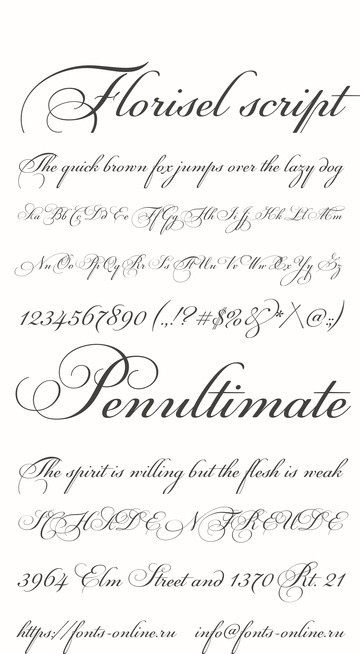 Florisel script
The quick brown fox jumps over the lazy dog
Aa Bb Cc Dd Ee Ff Gg Hh Ii Jj Kk Ll Mm
Nn Oo Pp Qq Rr Ss Tt Uu Vv Ww Xx Yy Zz
1234567890 (.,!?#$%&*\@:;)
Penultimate
The spirit is willing but the flesh is weak
SCHADENFREUDE
3964 Elm Street and 1370 Rt. 21
https://fonts-online.ru info@fonts-online.ru